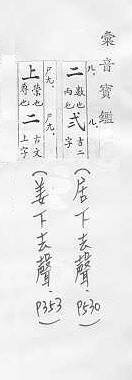 彙音寶鑑
八。
二 數也 兩也
弍 古二字
(居下去聲. P530)
尸九。
上 崇也 尊也
二 古文上字
(姜下去聲. P353)